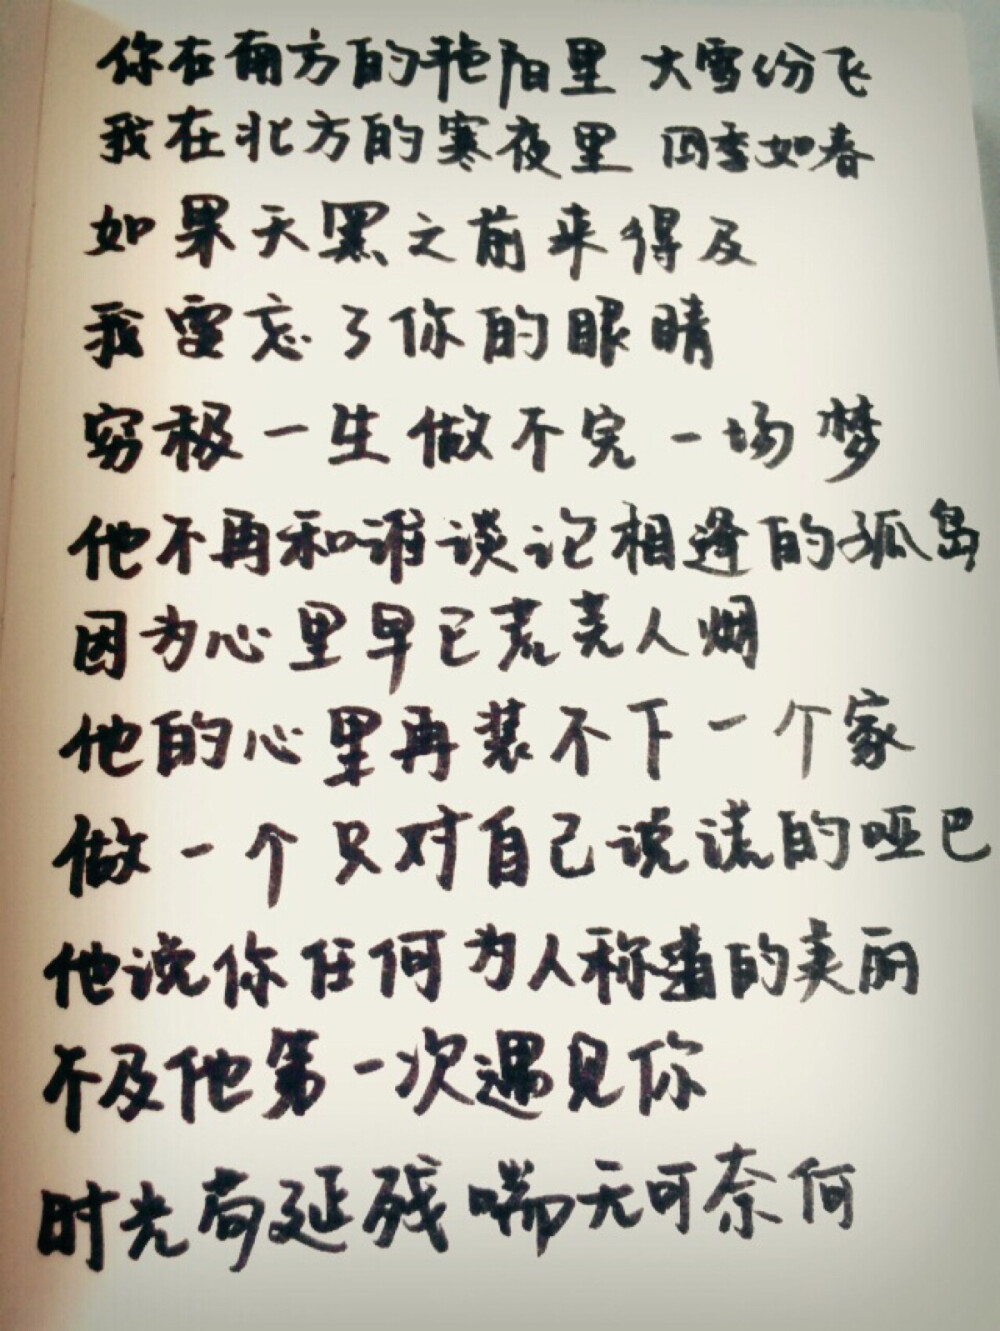 你在南方的艳阳里 大雪份飞
我在北方的寒夜里 四季如春
如果天黑之前来得及
我要忘了你的眼睛
穷极一生做不完一场梦
他不再和谁谈论相逢的孤岛
因为心里早已荒芜人烟
他的心里再装不下一个家
做一个只对自己说谎的哑巴
他说你任何为人称道的美丽
不及他第一次遇见你
时光苟延残喘无可奈何